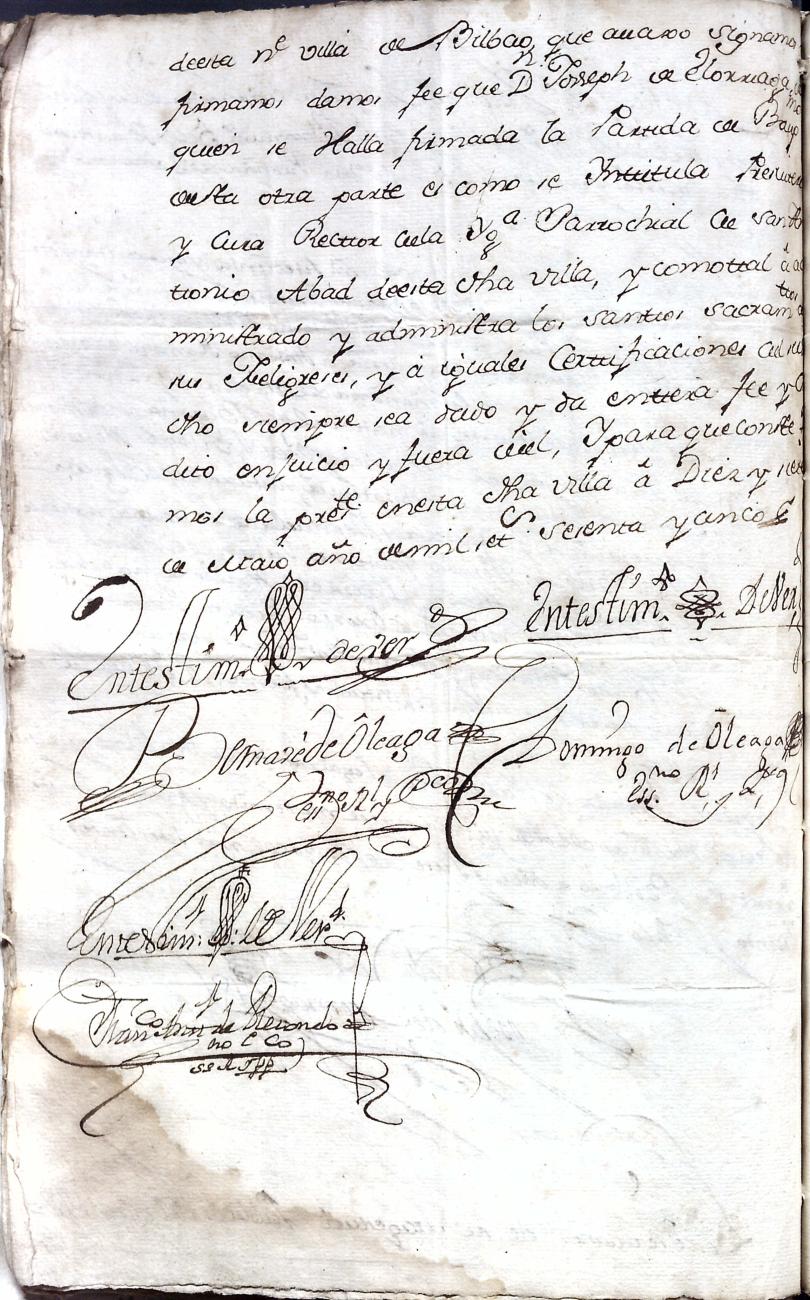 deesta nᵉ villa de Bilbao, que auaxo signamos
firmamos damos fee que Dⁿ. Josseph de Elorriaga,
quien se Halla firmada la Partida de
desta otra parte es como se Intitula
y Cura Rector dela Ygᵃ Parrochial de San
tionio Abad deesta dha villa, y comottal à ad
ministrado y administra los santtos sacramᵗᵒˢ
sus Feligreses, y à iguales Certtificaciones
dho siempre sea dado y da enttera fee y
ditto en Juicio y fuera del, Y para que conste
mos la presᵗᵉ en esta dha villa à Diez y
de Maio, año de mil settˢ sesenta y cinco
En testimᵒ. de verᵈ
En testimᵒ. De Ver
Bernavé de Oleaga
Domingo de Oleaga
Essⁿᵒ Rˡ y
Essⁿᵒ. Rˡ. y
En testimᵒ. de Verᵈ.
Franᶜᵒ Antᵒ de Redondo